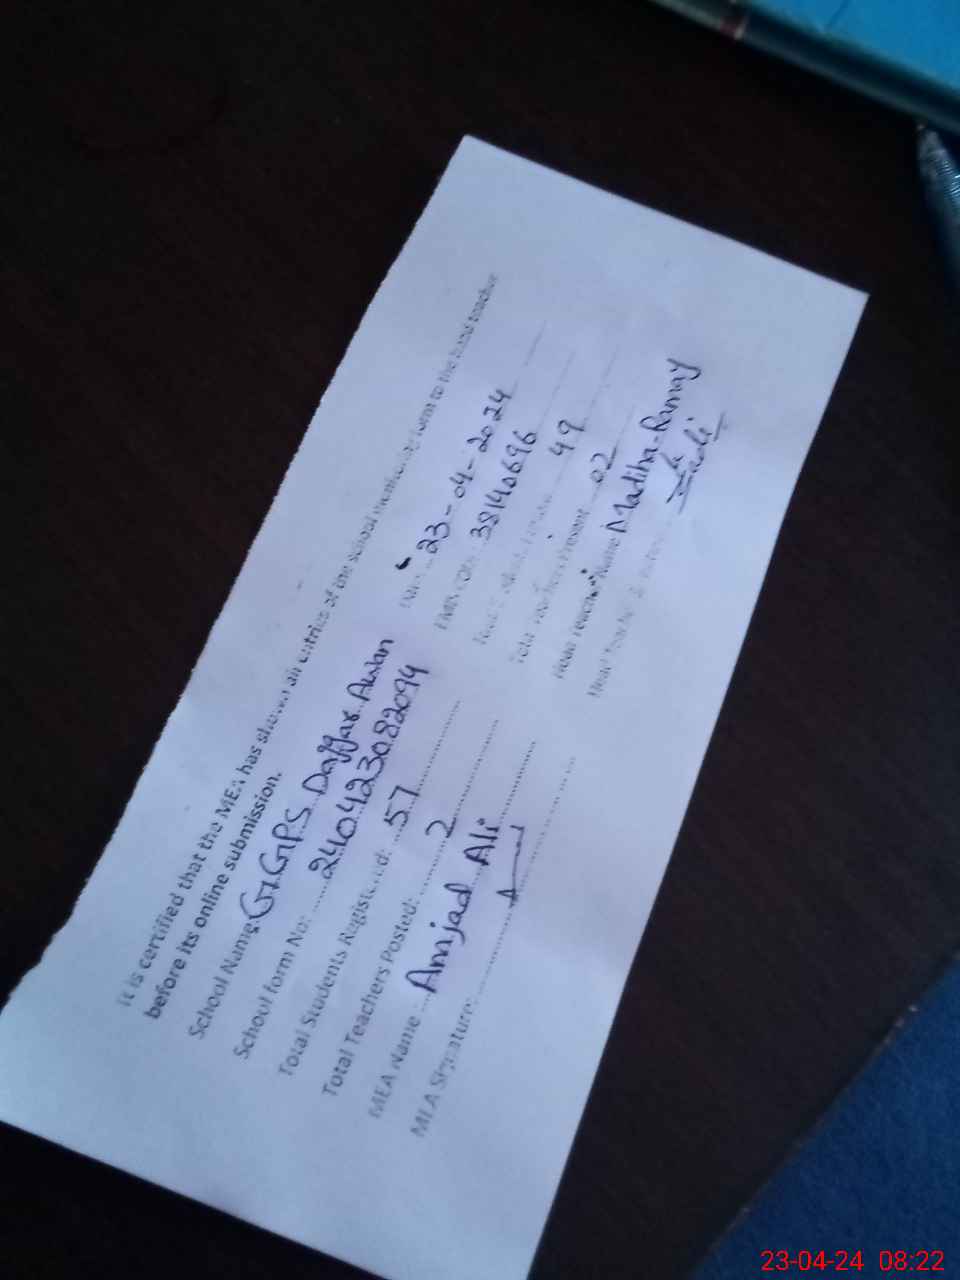 It is certified that the MEA has shown all entries of the school monitoring form to the head teacher
before its online submission.
School Name: GGPS Daggar Awan Date: 23-04-2024
School form No: 2410423082094 EMIS Code 38140696
Total Students Registered: 57 49
Total Teachers Posted: 2 Total Teachers Present 02
MEA Name Amjad Ali Head Teacher Name Madiha Ramay
MEA Signature: Head Teacher
23-04-24 08:22